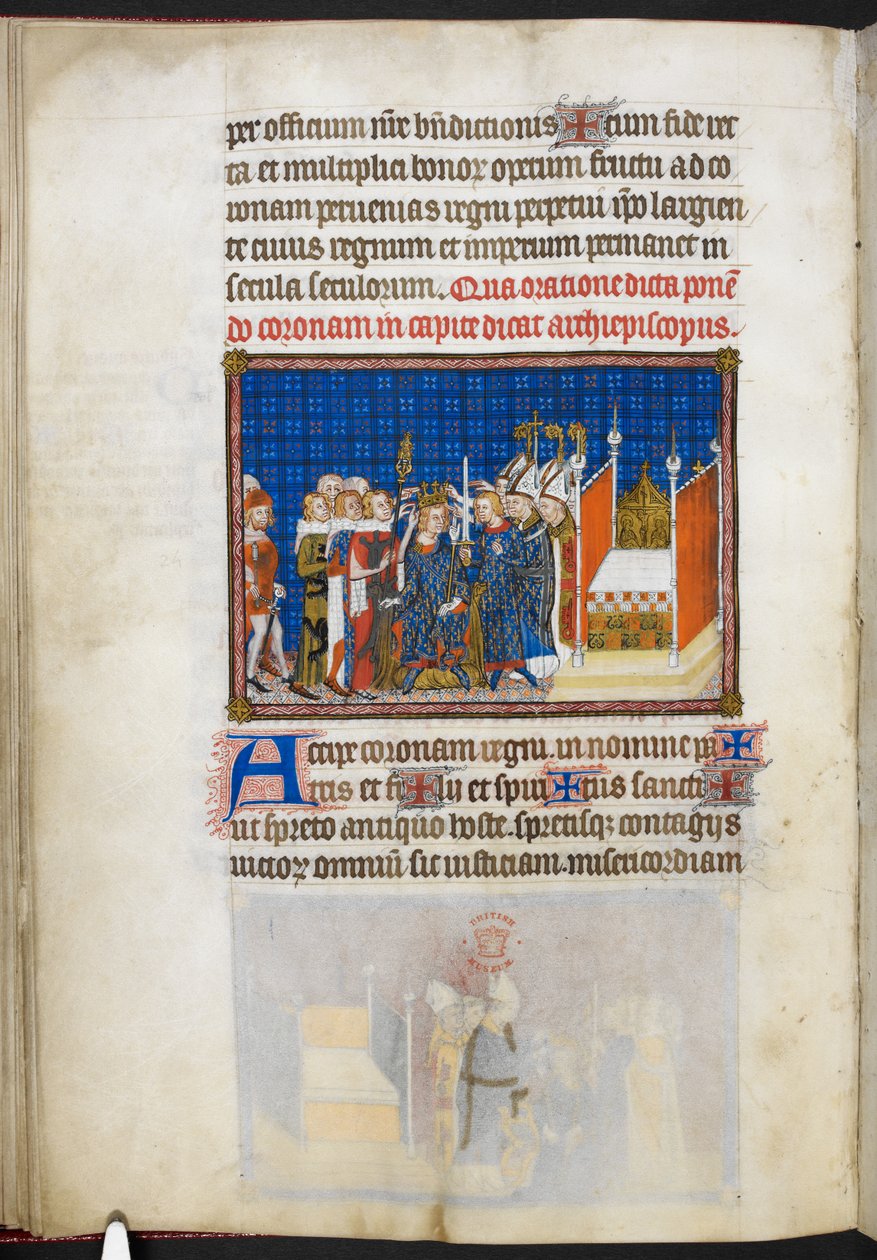 per officium nr̄e bn̄dictionis cum fide rec
ta et multiplici bonoꝝ operum fructu ad co
ronam peruenias regni perpetui ip̄o largien
te cuius regnum et imperium permanet in
secula seculorum. Qua oratione dicta ponē
do coronam in capite dicat archiepiscopus.
Accipe coronam regni. in nomine pa
tris et filij et spiritus sancti
ut spreto antiquo hoste. spretisqꝫ contagijs
uictoꝝ omniū sic iusticiam. misericordiam
BRITISH
MUSEUM